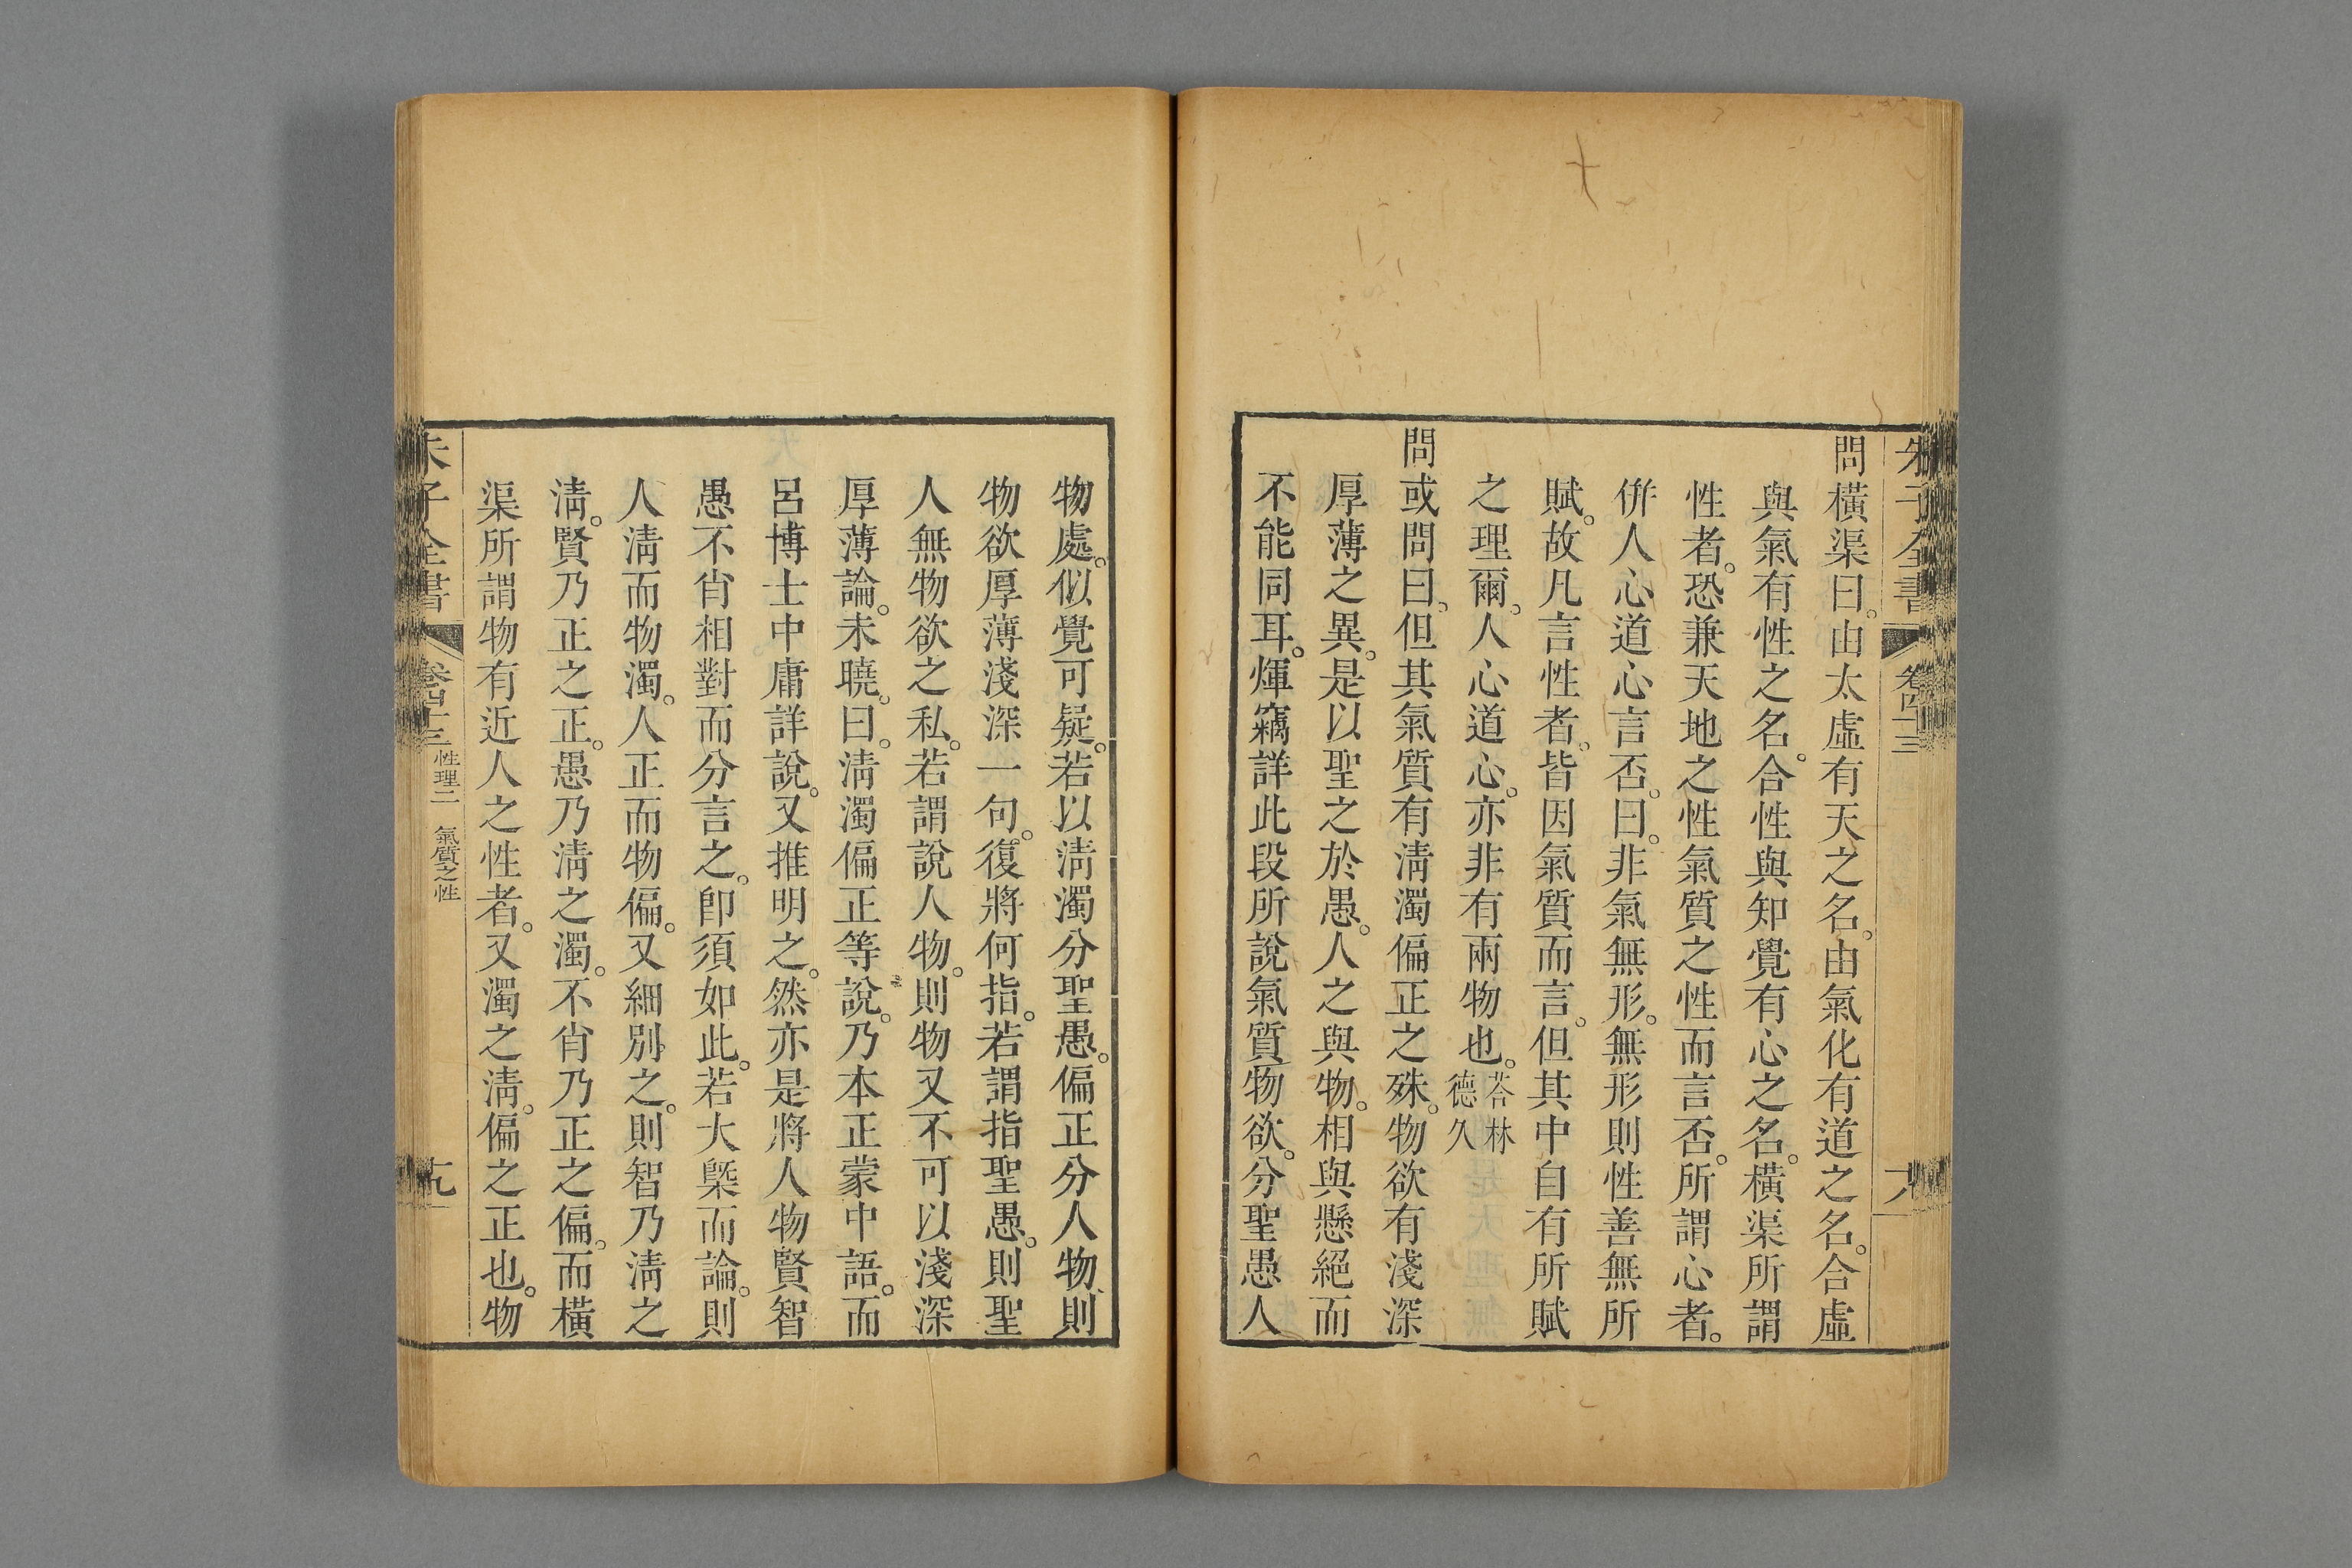 朱子全書 卷四十三 十八
問橫渠曰。由太虛有天之名。由氣化有道之名。合虛
與氣有性之名。合性與知覺有心之名。橫渠所謂
性者。恐兼天地之性氣質之性而言否。所謂心者。
併人心道心言否。曰。非氣無形。無形則性善無所
賦。故凡言性者。皆因氣質而言。但其中自有所賦
之理爾。人心道心。亦非有兩物也。荅林德久
問或問曰。但其氣質有淸濁偏正之殊。物欲有淺深
厚薄之異。是以聖之於愚。人之與物。相與懸絕而
不能同耳。煇竊詳此段所說氣質物欲。分聖愚人
物處。似覺可疑。若以淸濁分聖愚。偏正分人物。則
物欲厚薄淺深一句。復將何指。若謂指聖愚。則聖
人無物欲之私。若謂說人物。則物又不可以淺深
厚薄論。未曉。曰。淸濁偏正等說。乃本正蒙中語。而
呂博士中庸詳說。又推明之。然亦是將人物賢智
愚不肖相對而分言之。卽須如此。若大槩而論。則
人淸而物濁。人正而物偏。又細別之。則智乃淸之
淸。賢乃正之正。愚乃淸之濁。不肖乃正之偏。而橫
渠所謂物有近人之性者。又濁之淸。偏之正也。物
朱子全書 卷四十三 性理二 氣質之性 十九